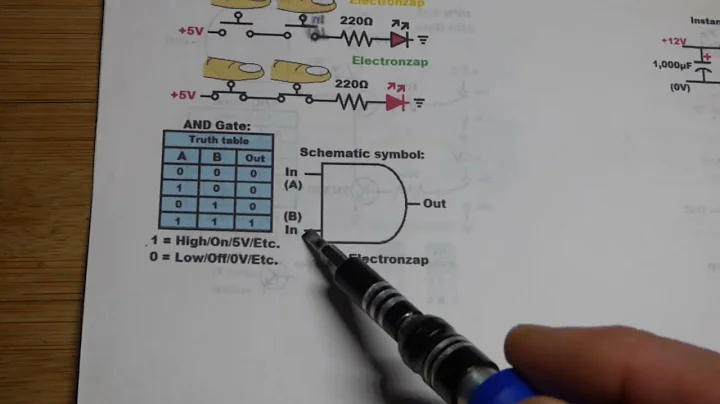 Electronzap
220Ω
+5V
Electronzap
220Ω
+5V
Instan
+12V
+
1,000µF
(0V)
AND Gate:
Truth table
A B Out
0 0 0
1 0 0
0 1 0
1 1 1
1 = High/On/5V/Etc.
0 = Low/Off/0V/Etc.
Schematic symbol:
In
(A)
Out
(B)
In
Electronzap